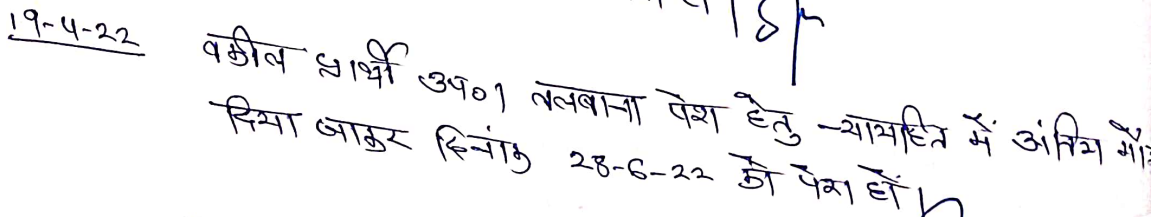 19-4-22 वकील प्रार्थी उप०। तलबाना पेश हेतु न्यायहित में अंतिम
दिया जाकर दिनांक 28-6-22 को पेश हो